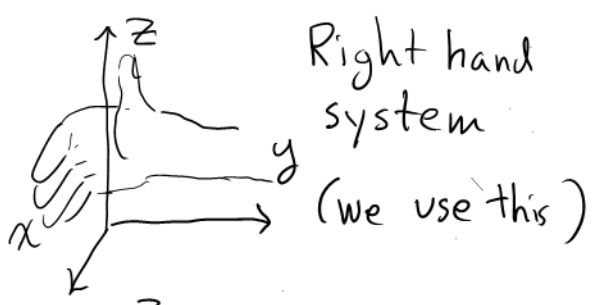 z
Right hand
system
y
x
(we use this)